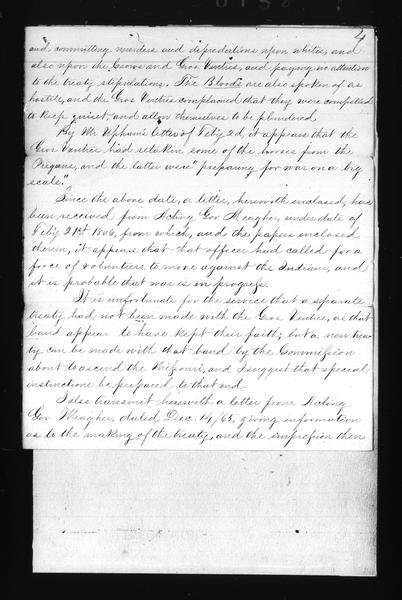 4
and committing murders and depredations upon whites, and
also upon the Crows and Gros Ventres, and paying no attention
to the treaty stipulations. The Bloods are also spoken of as
hostile, and the Gros Ventres complained that they were compelled
to keep quiet, and allow themselves to be plundered.
By Mr Upham's letter of Feb'y 2d, it appears that the
Gros Ventres had retaken some of the horses from the
Piegans, and the latter were "preparing for war on a big
scale."
Since the above date, a letter, herewith enclosed, has
been received from Acting Gov. Meagher, under date of
Feb'y 21st 1866, from which, and the papers enclosed
therein, it appears that that officer had called for a
force of volunteers to move against the Indians, and
it is probable that war is in progress.
It is unfortunate for the service that a separate
treaty had not been made with the Gros Ventres, as that
band appear to have kept their faith; but a new trea-
ty can be made with that band by the Commission
about to ascend the Missouri, and I suggest that special
instructions be prepared to that end.
I also transmit herewith a letter from Acting
Gov. Meagher, dated Dec. 14/65, giving information
as to the making of the treaty, and the impression then